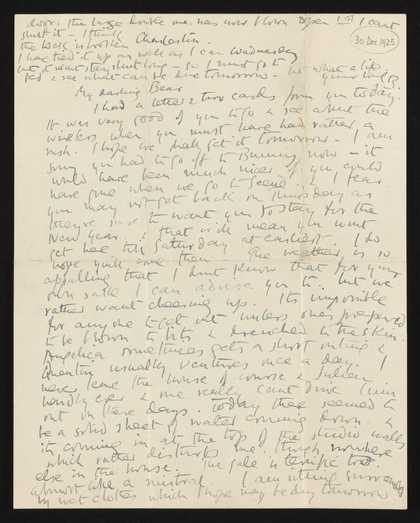 door, the large double one, has now blown open & I can't
shut it - I think
the lock is broken
Charleston.
30 Dec 1925
I have tied it up as well as I can
Wednesday
but it won't stay shut long - so I must go to
bed & see what can be done tomorrow. what a life.
My darling Bear
I had a letter & two cards from you today.
It was very good of you to go & see about the
wireless when you must have had rather a
rush. I hope we shall get it tomorrow. I am
sorry you had to go off to now - it
would have been much nicer if you could
have gone when we go to Seend. & I fear
you may not get back on Thursday as
they're sure to want you to stay for the
New Year. & that will mean you won't
get here till Saturday at earliest. I do
hope you'll come then. The weather is so
appalling that I don't know that for your
own sake I can advise you to. but we
rather want cheering up. It's impossible
for anyone to get out unless one's prepared
to be blown to bits & drenched to the skin.
Angelica sometimes gets a short outing &
Quentin usually ventures once a day. I
never leave the house of course & Julian
hardly ever & one really can't
out in these days. Today there seemed to
be a solid sheet of water coming down &
it's coming in at the top of the studio walls
which rather disturbs me. though nowhere
else in the house. The gale is terrific too.
almost like a mistral. I am sitting surrounded
by wet clothes which I hope may be dry tomorrow